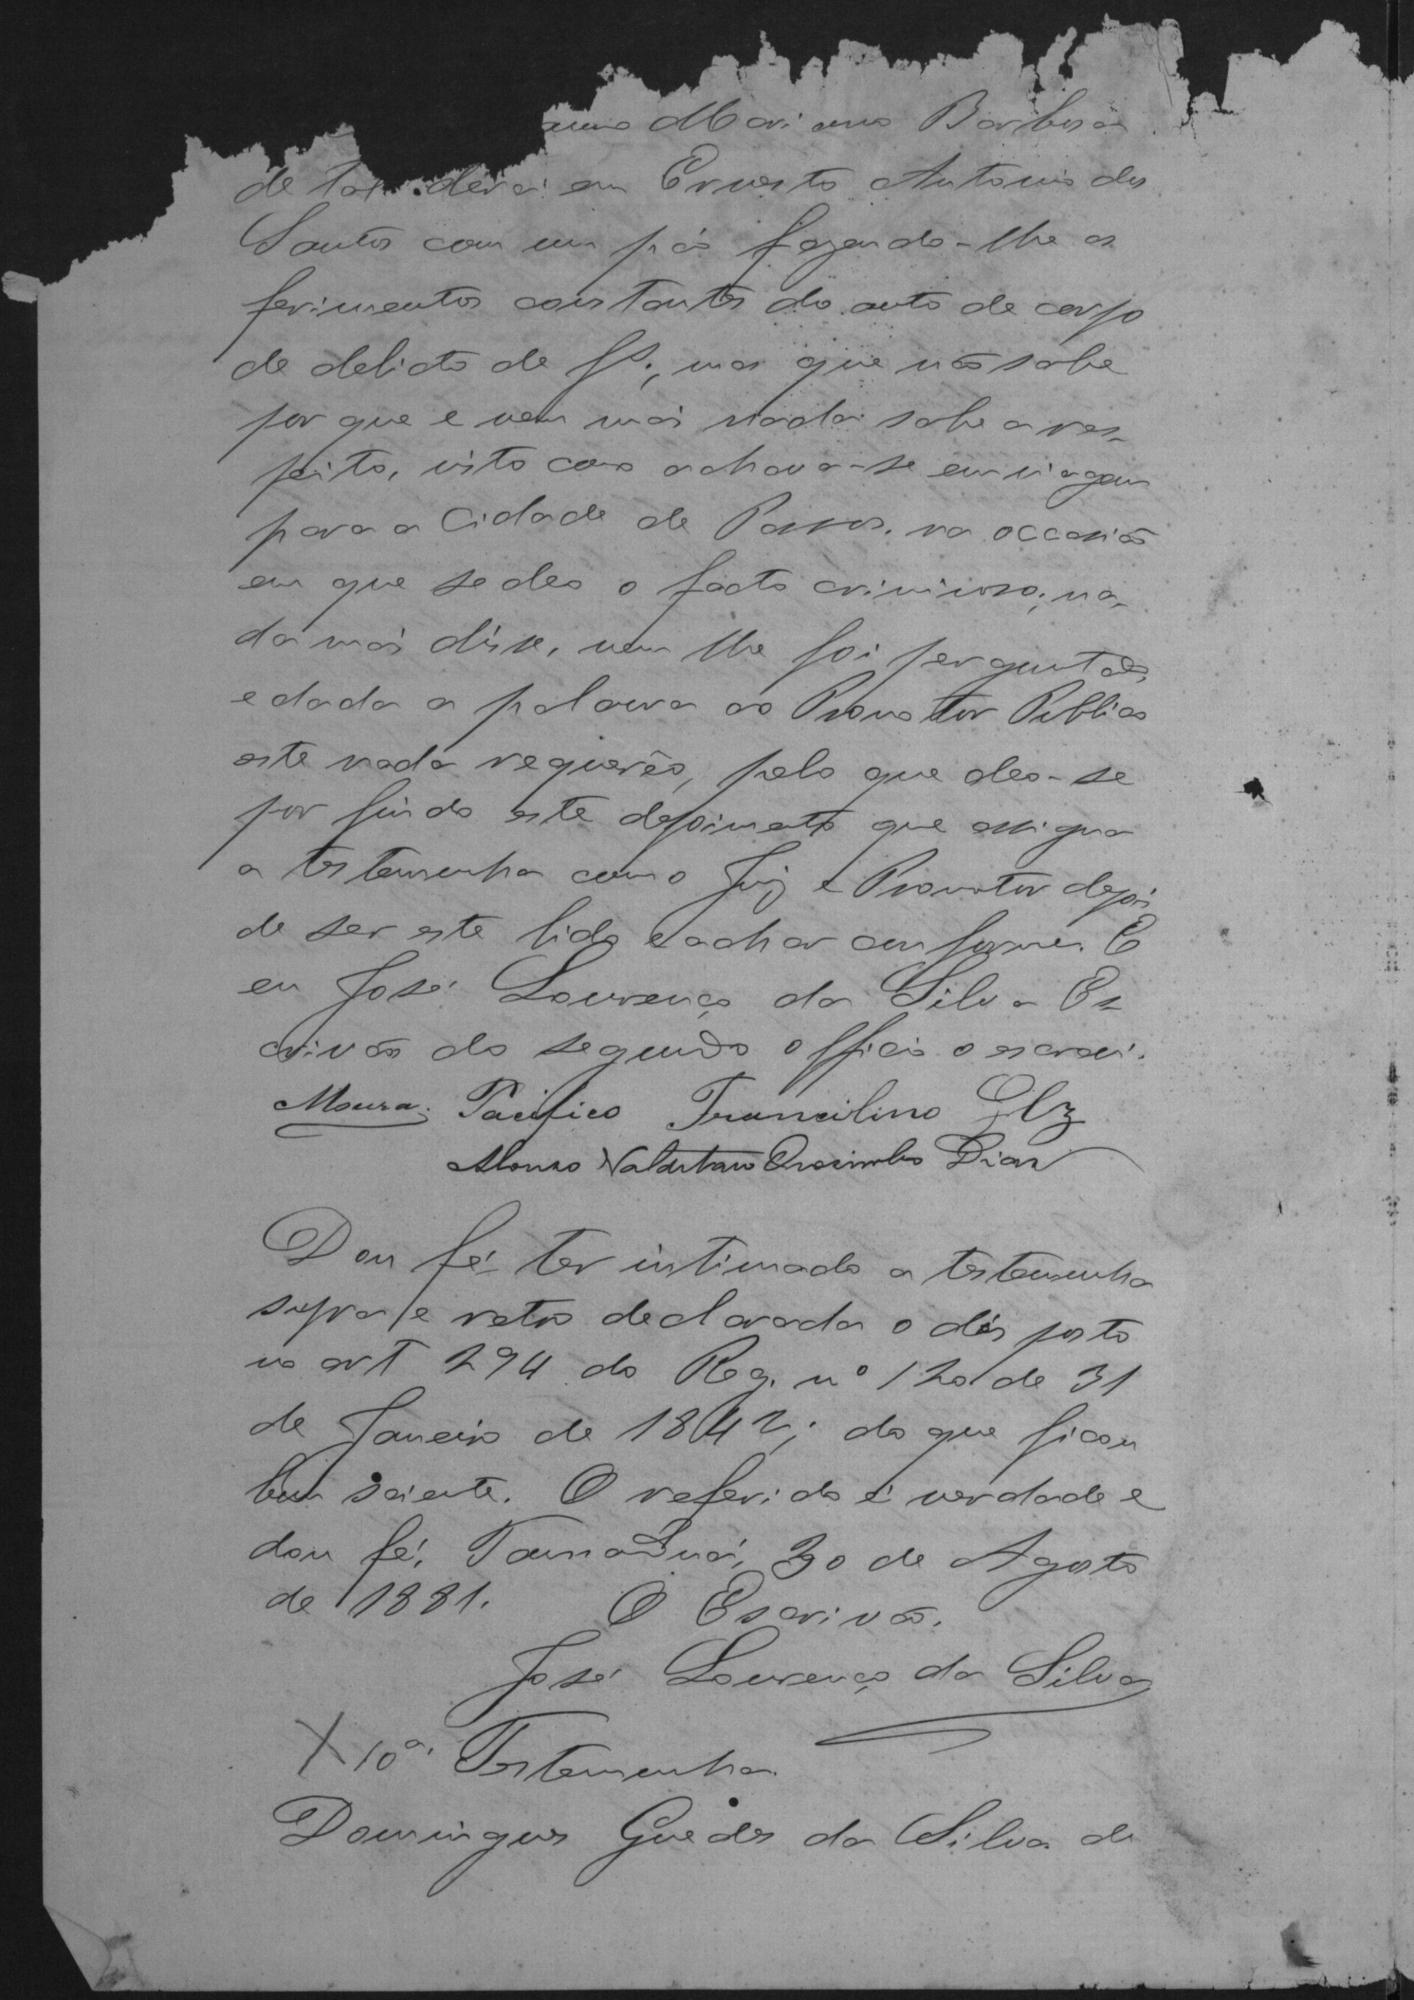 Mariano Barbosa
de tal dera em Ernesto Antonio dos
Santos com um páo fazendo-lhe os
ferimentos constantes do auto de corpo
de delicto de fs., mas que não sabe
por que e nem mais nada sabe a res-
peito, visto como achava-se em viagem
para a Cidade de Passos, na occasião
em que se deo o facto criminoso; na-
da mais disse, nem lhe foi perguntado,
e dada a palavra ao Promotor Publico
este nada requerêo, pelo que deo-se
por findo este depoimento que assigna
a testemunha com o Juiz e Promotor depois
de ser este lido e achar conforme. E
eu José Lourenço da Silva Es-
crivão do segundo officio o escrevi.
Moura. Pacifico Trancilino
Dias
Dou fé ter intimado a testemunha
supra e retro declarada o disposto
no art 294 do Reg. nº 120 de 31
de Janeiro de 1842; do que ficou
bem sciente. O referido é verdade e
dou fé, Jamanduá, 30 de Agosto
de 1881. O Escrivão.
José Lourenço da Silva
X 10ª Testemunha
Domingos Guedes da Silva de